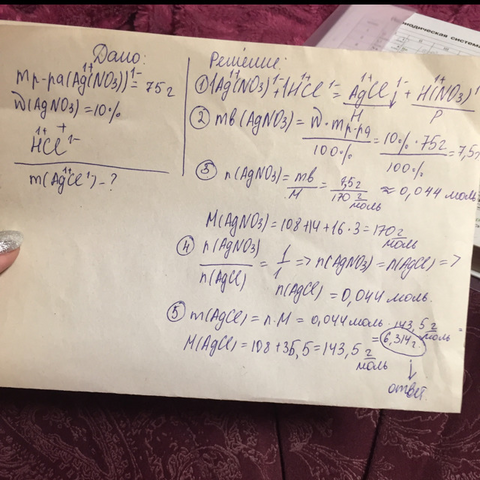 Дано:
mр-ра(Ag(NO3))=75г
ω(AgNO3)=10%
HCl
m(AgCl)-?
Решение:
① 1Ag(NO3)+1HCl=AgCl↓+H(NO3)
Н Р
② mв(AgNO3)=ω·mр-ра/100%=10%·75г/100%=7,5г
③ n(AgNO3)=mв/M=7,5г/170 г/моль≈0,044 моль
M(AgNO3)=108+14+16·3=170 г/моль
④ n(AgNO3)/n(AgCl)=1/1=>n(AgNO3)=n(AgCl)=>
n(AgCl)=0,044 моль.
⑤ m(AgCl)=n·M=0,044 моль·143,5 г/моль=
=6,314г
M(AgCl)=108+35,5=143,5 г/моль
ответ
одическая система